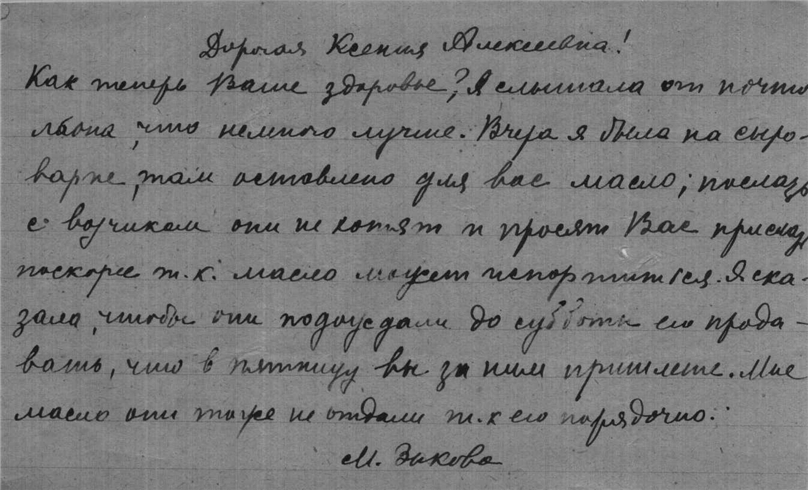 Дорогая Ксения Алексеевна!
Как теперь Ваше здоровье? Я слышала от почта
льона, что немного лучше. Вчера я была на сыро-
варне, там оставлено для вас масло; послать
с возчиком они не хотят и просят Вас прислать
поскорее т.к. масло может испортиться. Я ска-
зала, чтобы они подождали до субботы его прода-
вать, что в пятницу вы за ним пришлете. Мне
масло они тоже не отдали т.к его порядочно.
М. Зыкова